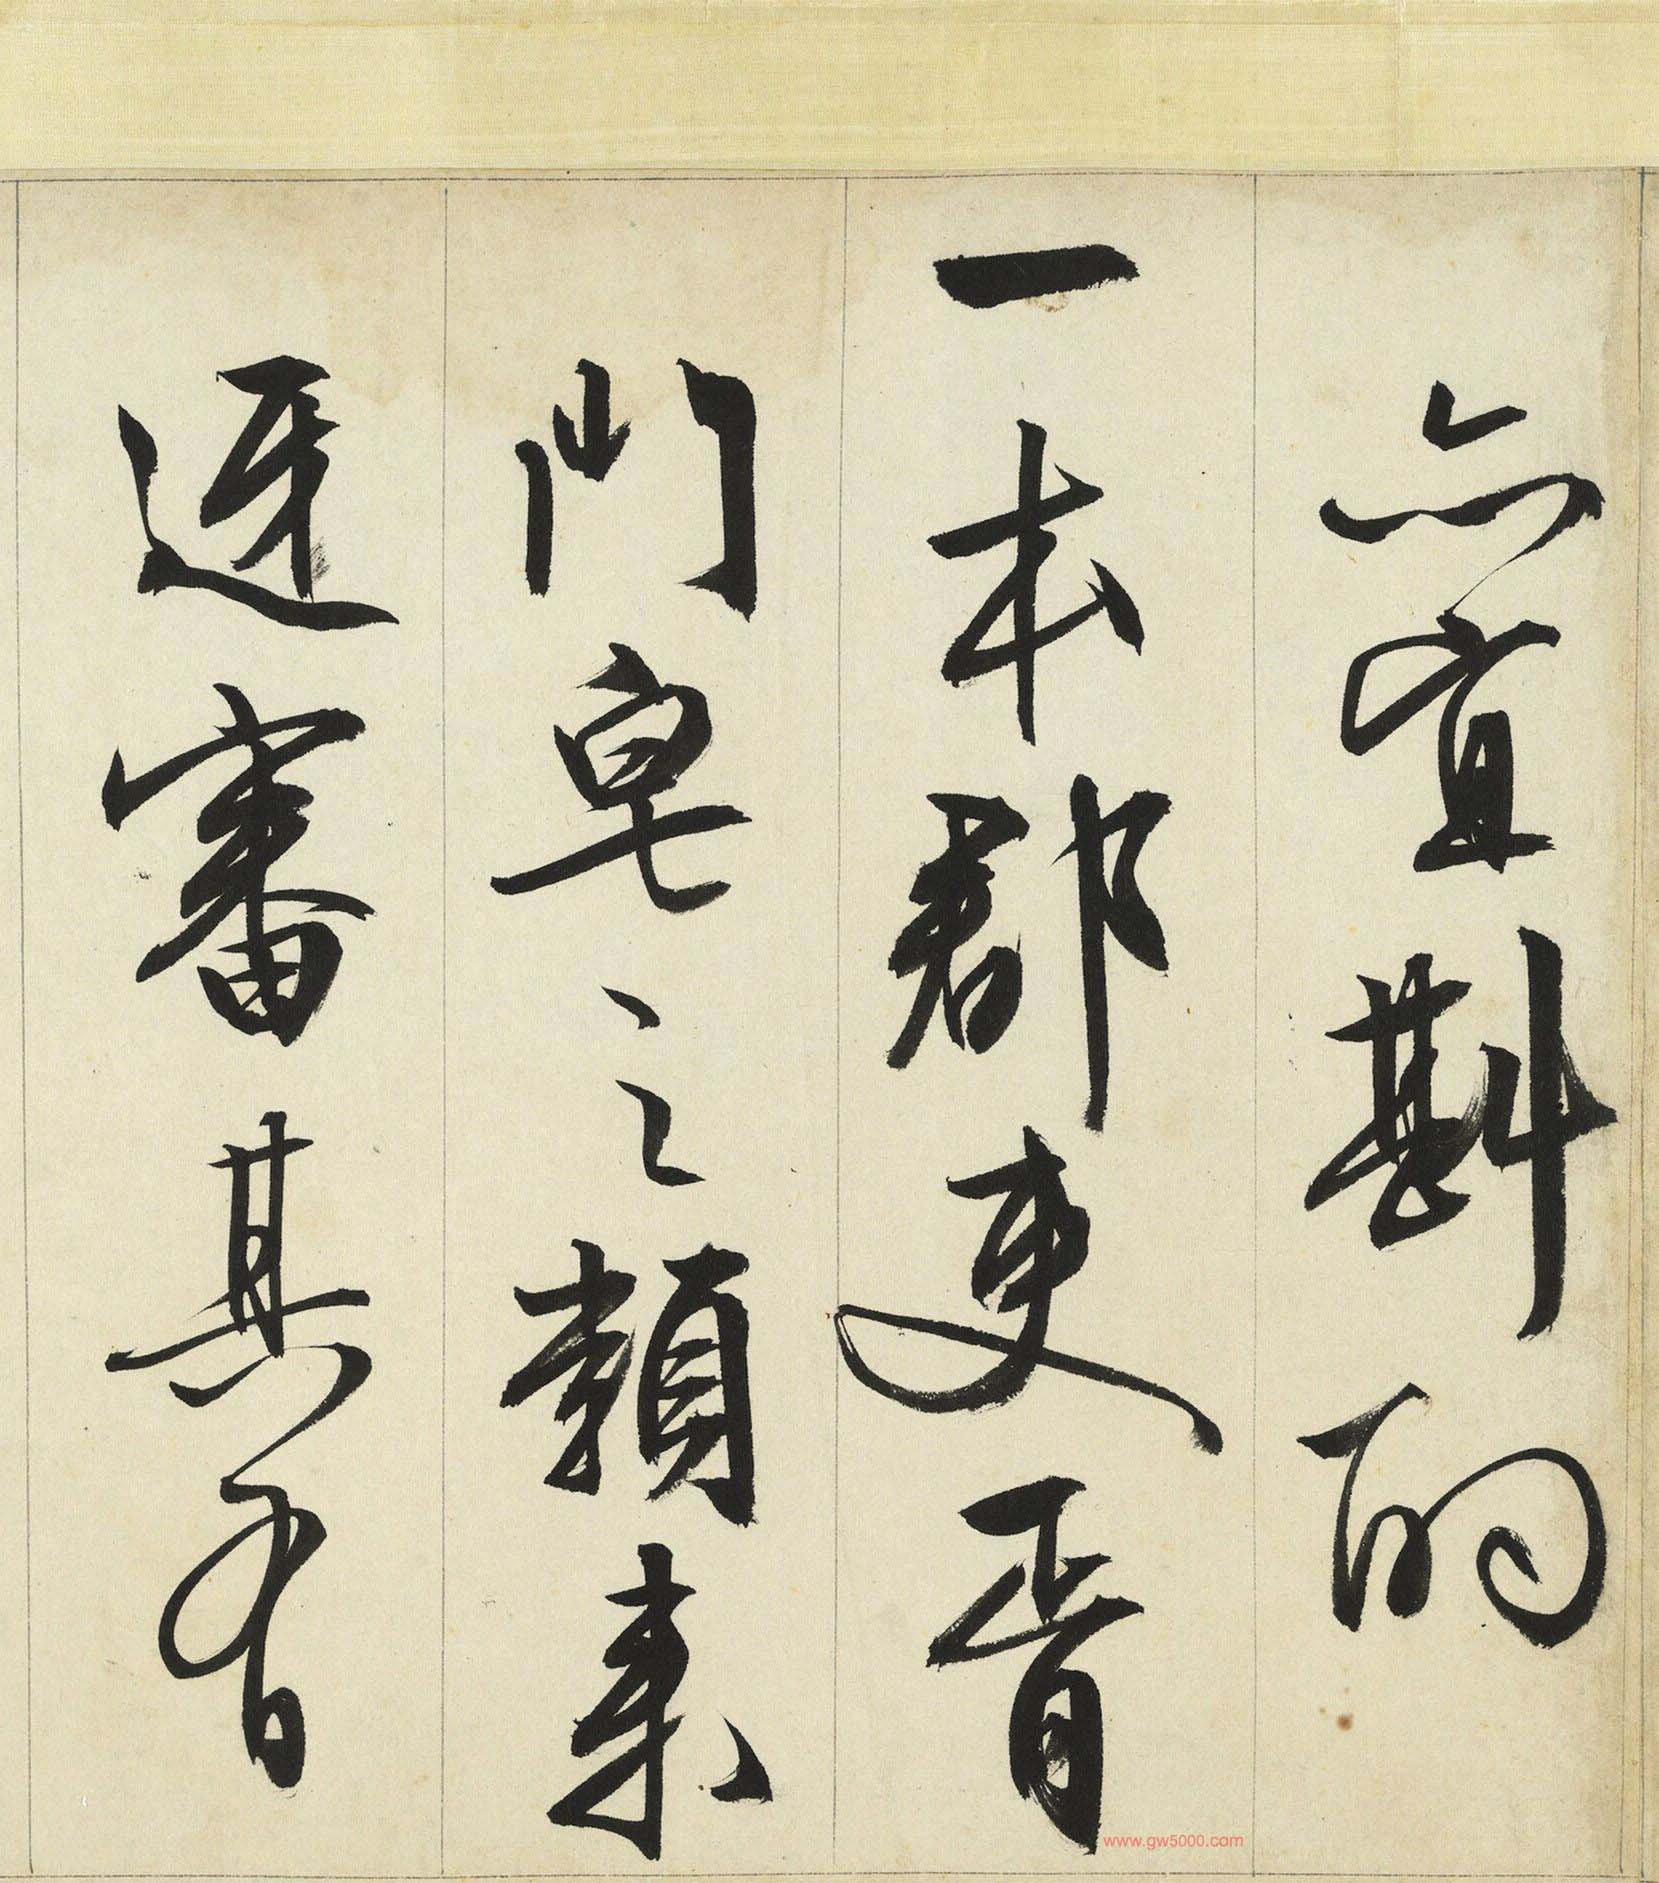 亦宜斟酌
一本郡吏胥
門皂之類來
迎審其有
www.gw5000.com